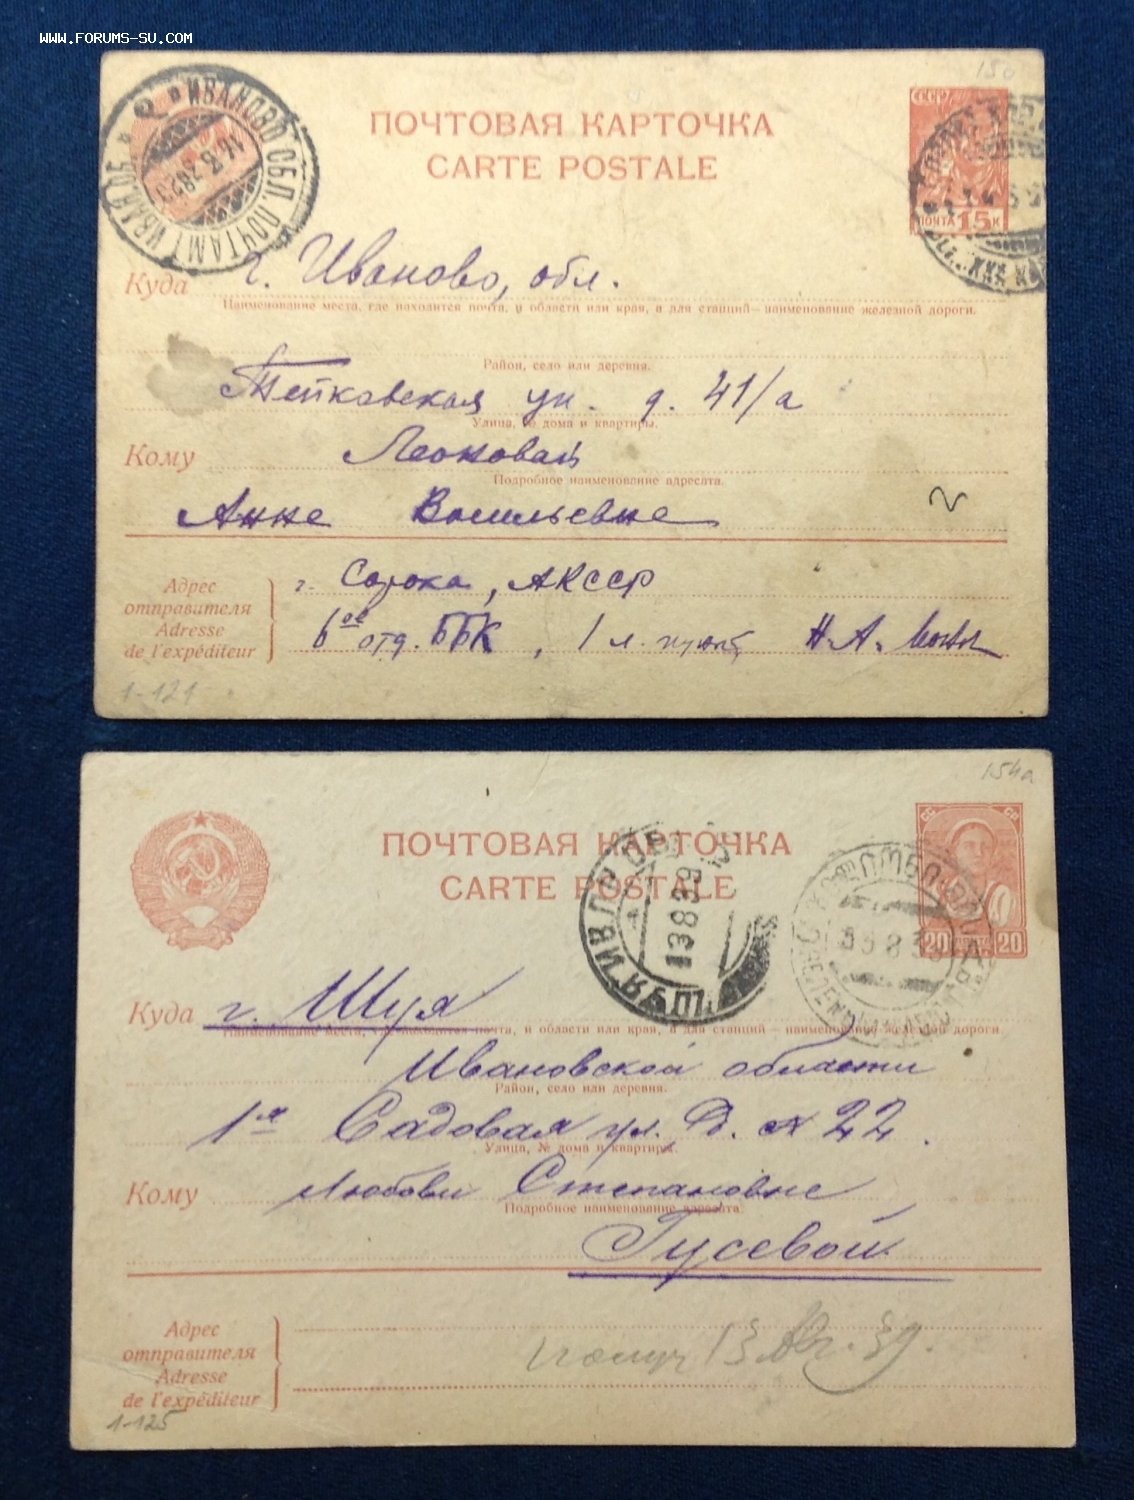 www.forums-su.com
150
ПОЧТОВАЯ КАРТОЧКА
CARTE POSTALE
СССР
ПОЧТА 15 К
ИВАНОВО ОБЛ. ПОЧТАМТ
Куда г. Иваново, обл.
Наименование места, где находится почта, и области или края, а для станций — наименование железной дороги.
Район, село или деревня.
ул. д. 41/а
Улица, № дома и квартиры.
Кому Леоновой
Подробное наименование адресата.
Анне Васильевне
Адрес отправителя
Adresse de l'expéditeur
г. Сорока, АКССР
6ое отд. ББК, 1 л. пункт Н. А.
1-121
154а
ПОЧТОВАЯ КАРТОЧКА
CARTE POSTALE
20 ПОЧТА 20
13 8 39
Куда г. Шуя
Наименование места, где находится почта, и области или края, а для станций — наименование железной дороги.
Ивановской области
Район, село или деревня.
1я Садовая ул. Д. № 22.
Улица, № дома и квартиры.
Кому Любови Степановне
Подробное наименование адресата.
Гусевой
Адрес отправителя
Adresse de l'expéditeur
получ 13 Авг. 39.
1-125